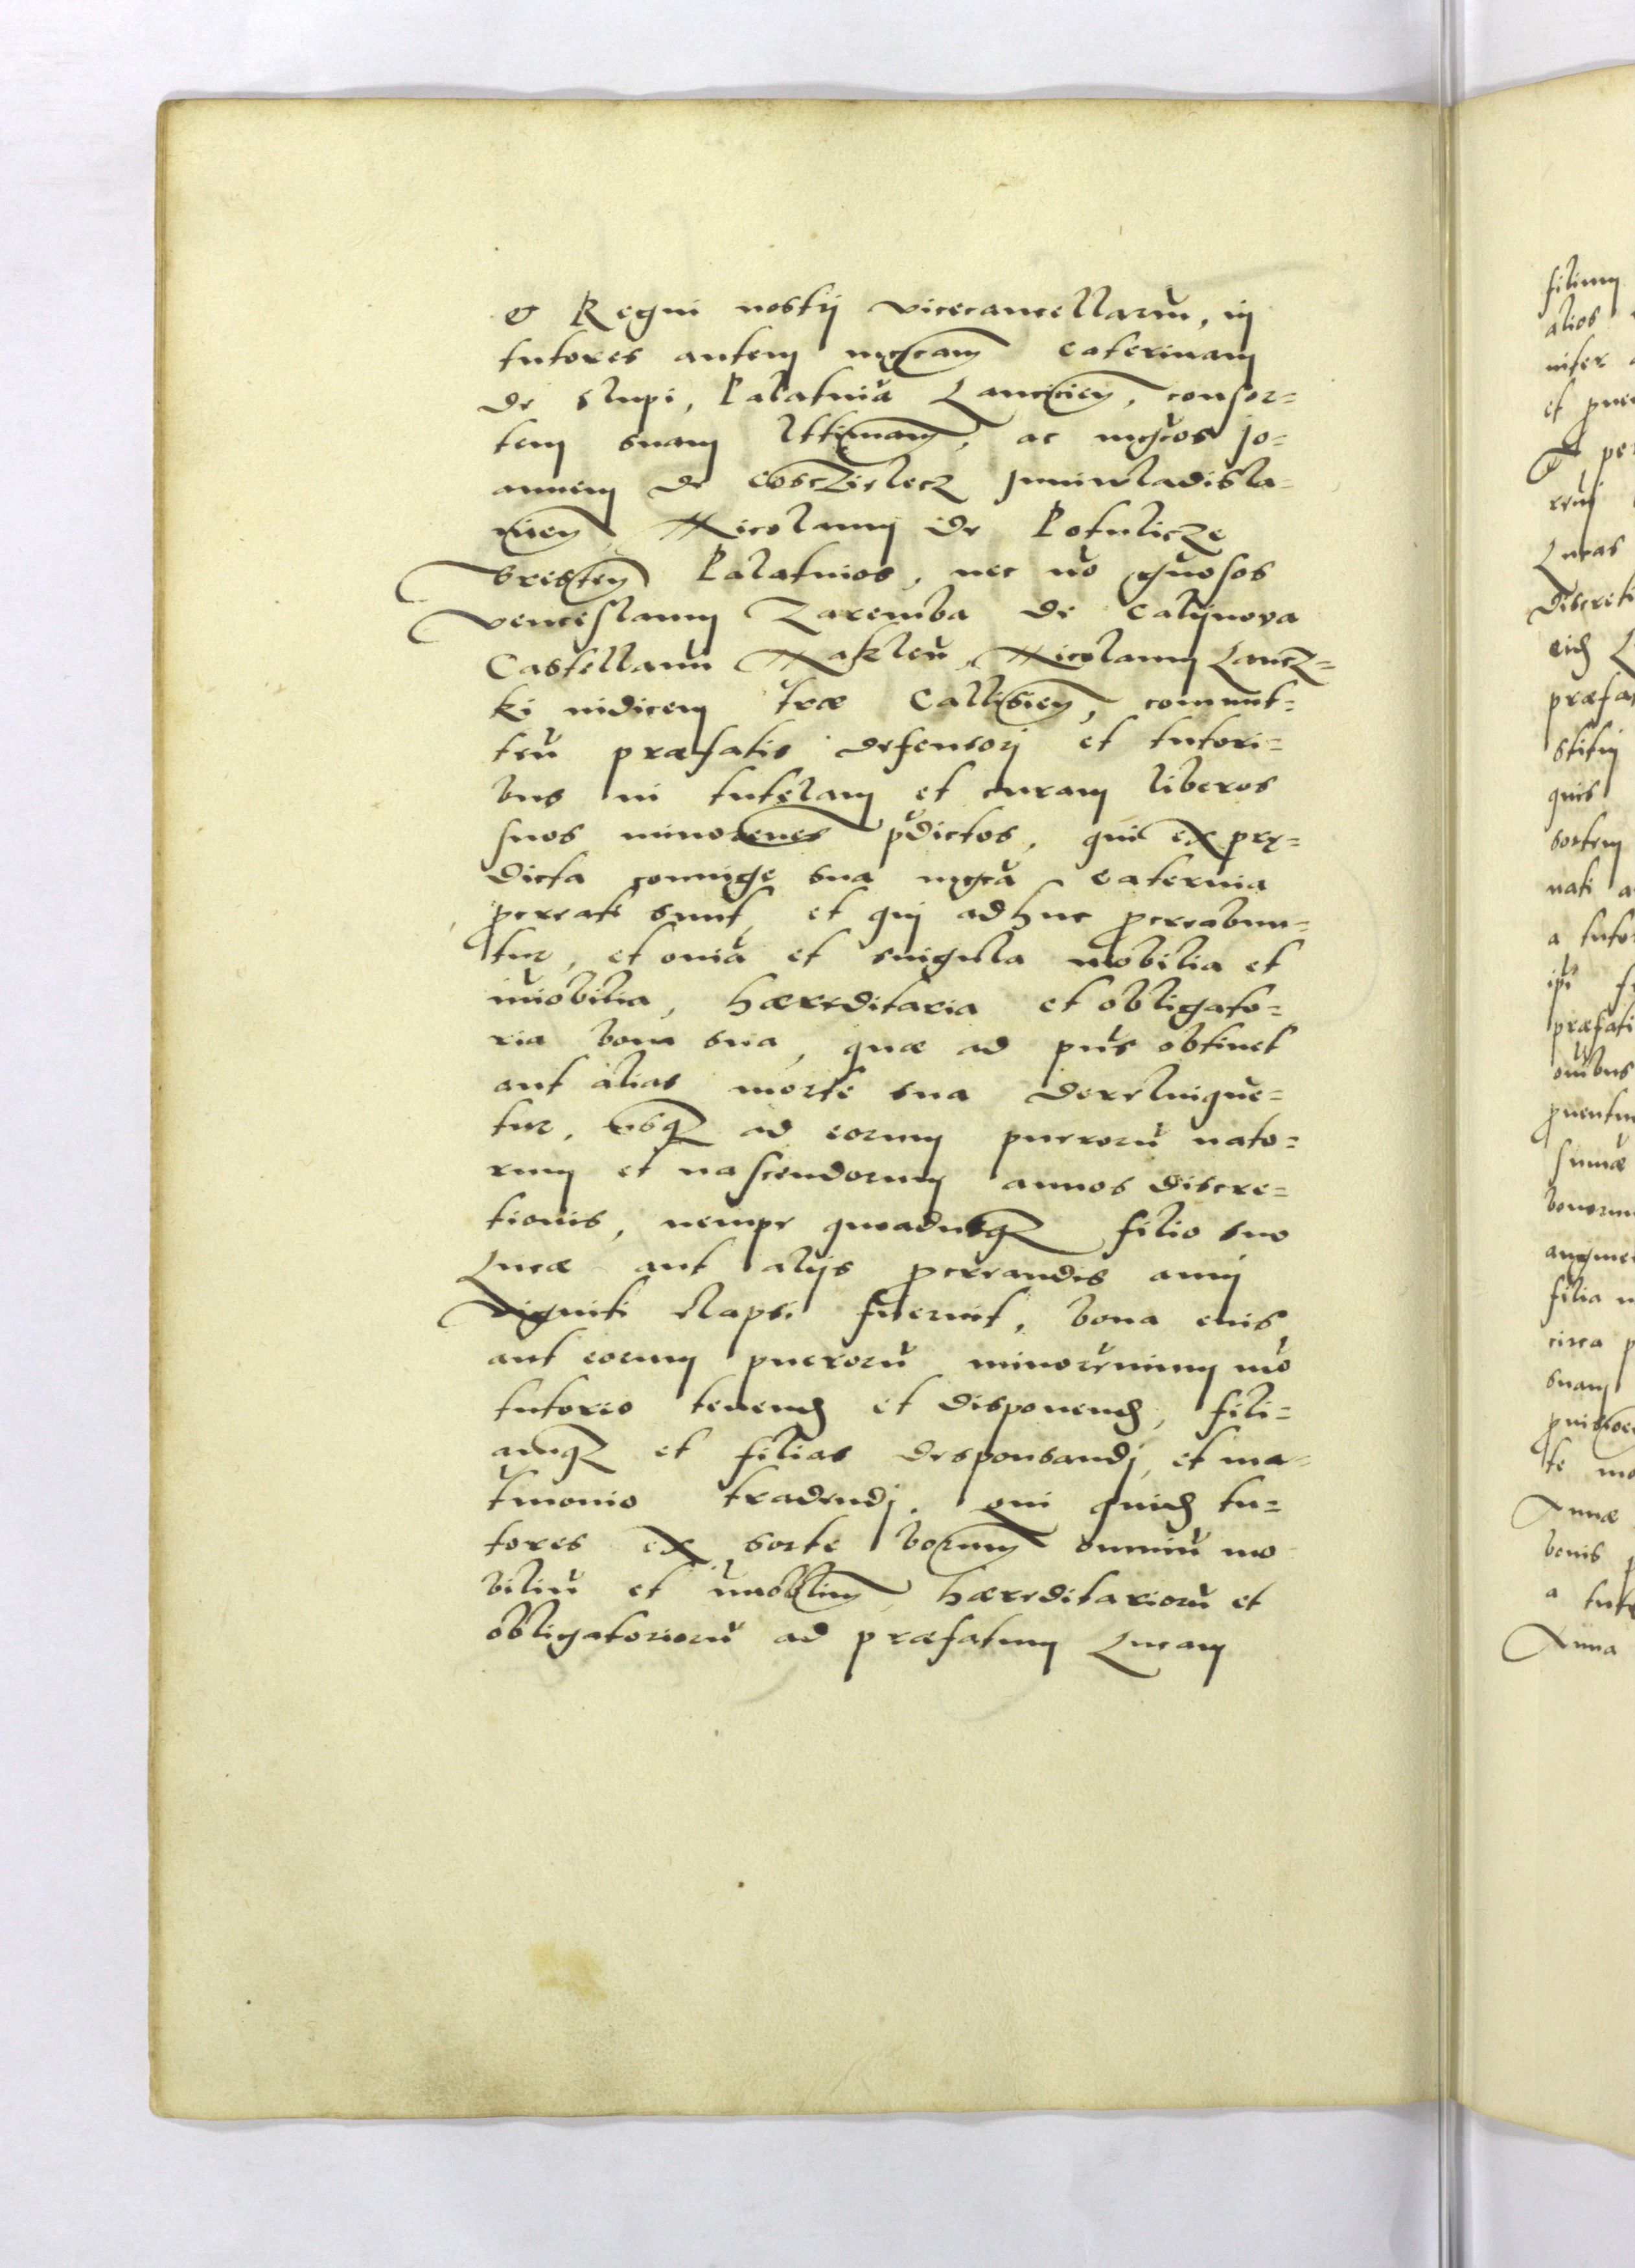 et Regni nostrj vicecancellariũ, in
tutores autem mgcam Caterinam
de Slupi, Palatinã Lanciciem, consor=
tem suam lttimam, ac mgcos Jo=
annem de Cosczielecz Juniwladisla-
viem Nicolaum de Potulicze
Brestem Palatinos, nec nõ gñosos
Venceslaum Zaremba de Calijnova
Castellanũ Naklen, Nicolaum Lancz=
ki iudicem træ Callisiem, commit=
teñ præfatis defensorj et tutori=
bus in tutelam et curam liberos
suos minorenes p̃dictos, qui ex prę=
dicta coniuge sua mgcã Caterina
procreati sunt, et qui adhuc procreabun=
tur, et oniã et singula mobilia et
im̃obilia, hæreditaria et obligato=
ria bona sua, quæ ad pñs obtinet
aut alias morte sua derelinque=
tur, vsq ad eorum puerorũ nato=
rum et nascendorum annos discre=
tionis, nempe quoadusq filio suo
Lucæ aut alijs procreandis annj
viginti elapsi fuerint, bona eius
aut eorum puerorũ minorennium mõ
tutorio tenend et disponend, fili=
amq et filias desponsandj, et ma=
trimonio tradendj. qui quid tu=
tores ex sorte bonorum omniũ mo
biliũ et imobilium, hæreditariorũ et
obligatoriorũ ad præfatum Lucam
filium
alios
niter
et prue
Lucas
Discreti
eid
præfa
stitui
quis
sortem
nati a
a tuto
ipi
præfati
onibus
prouentu
sum̃æ
bonorum
augme
filia
circa p
suam
te mo
Annæ
bonis
a tut
Anna